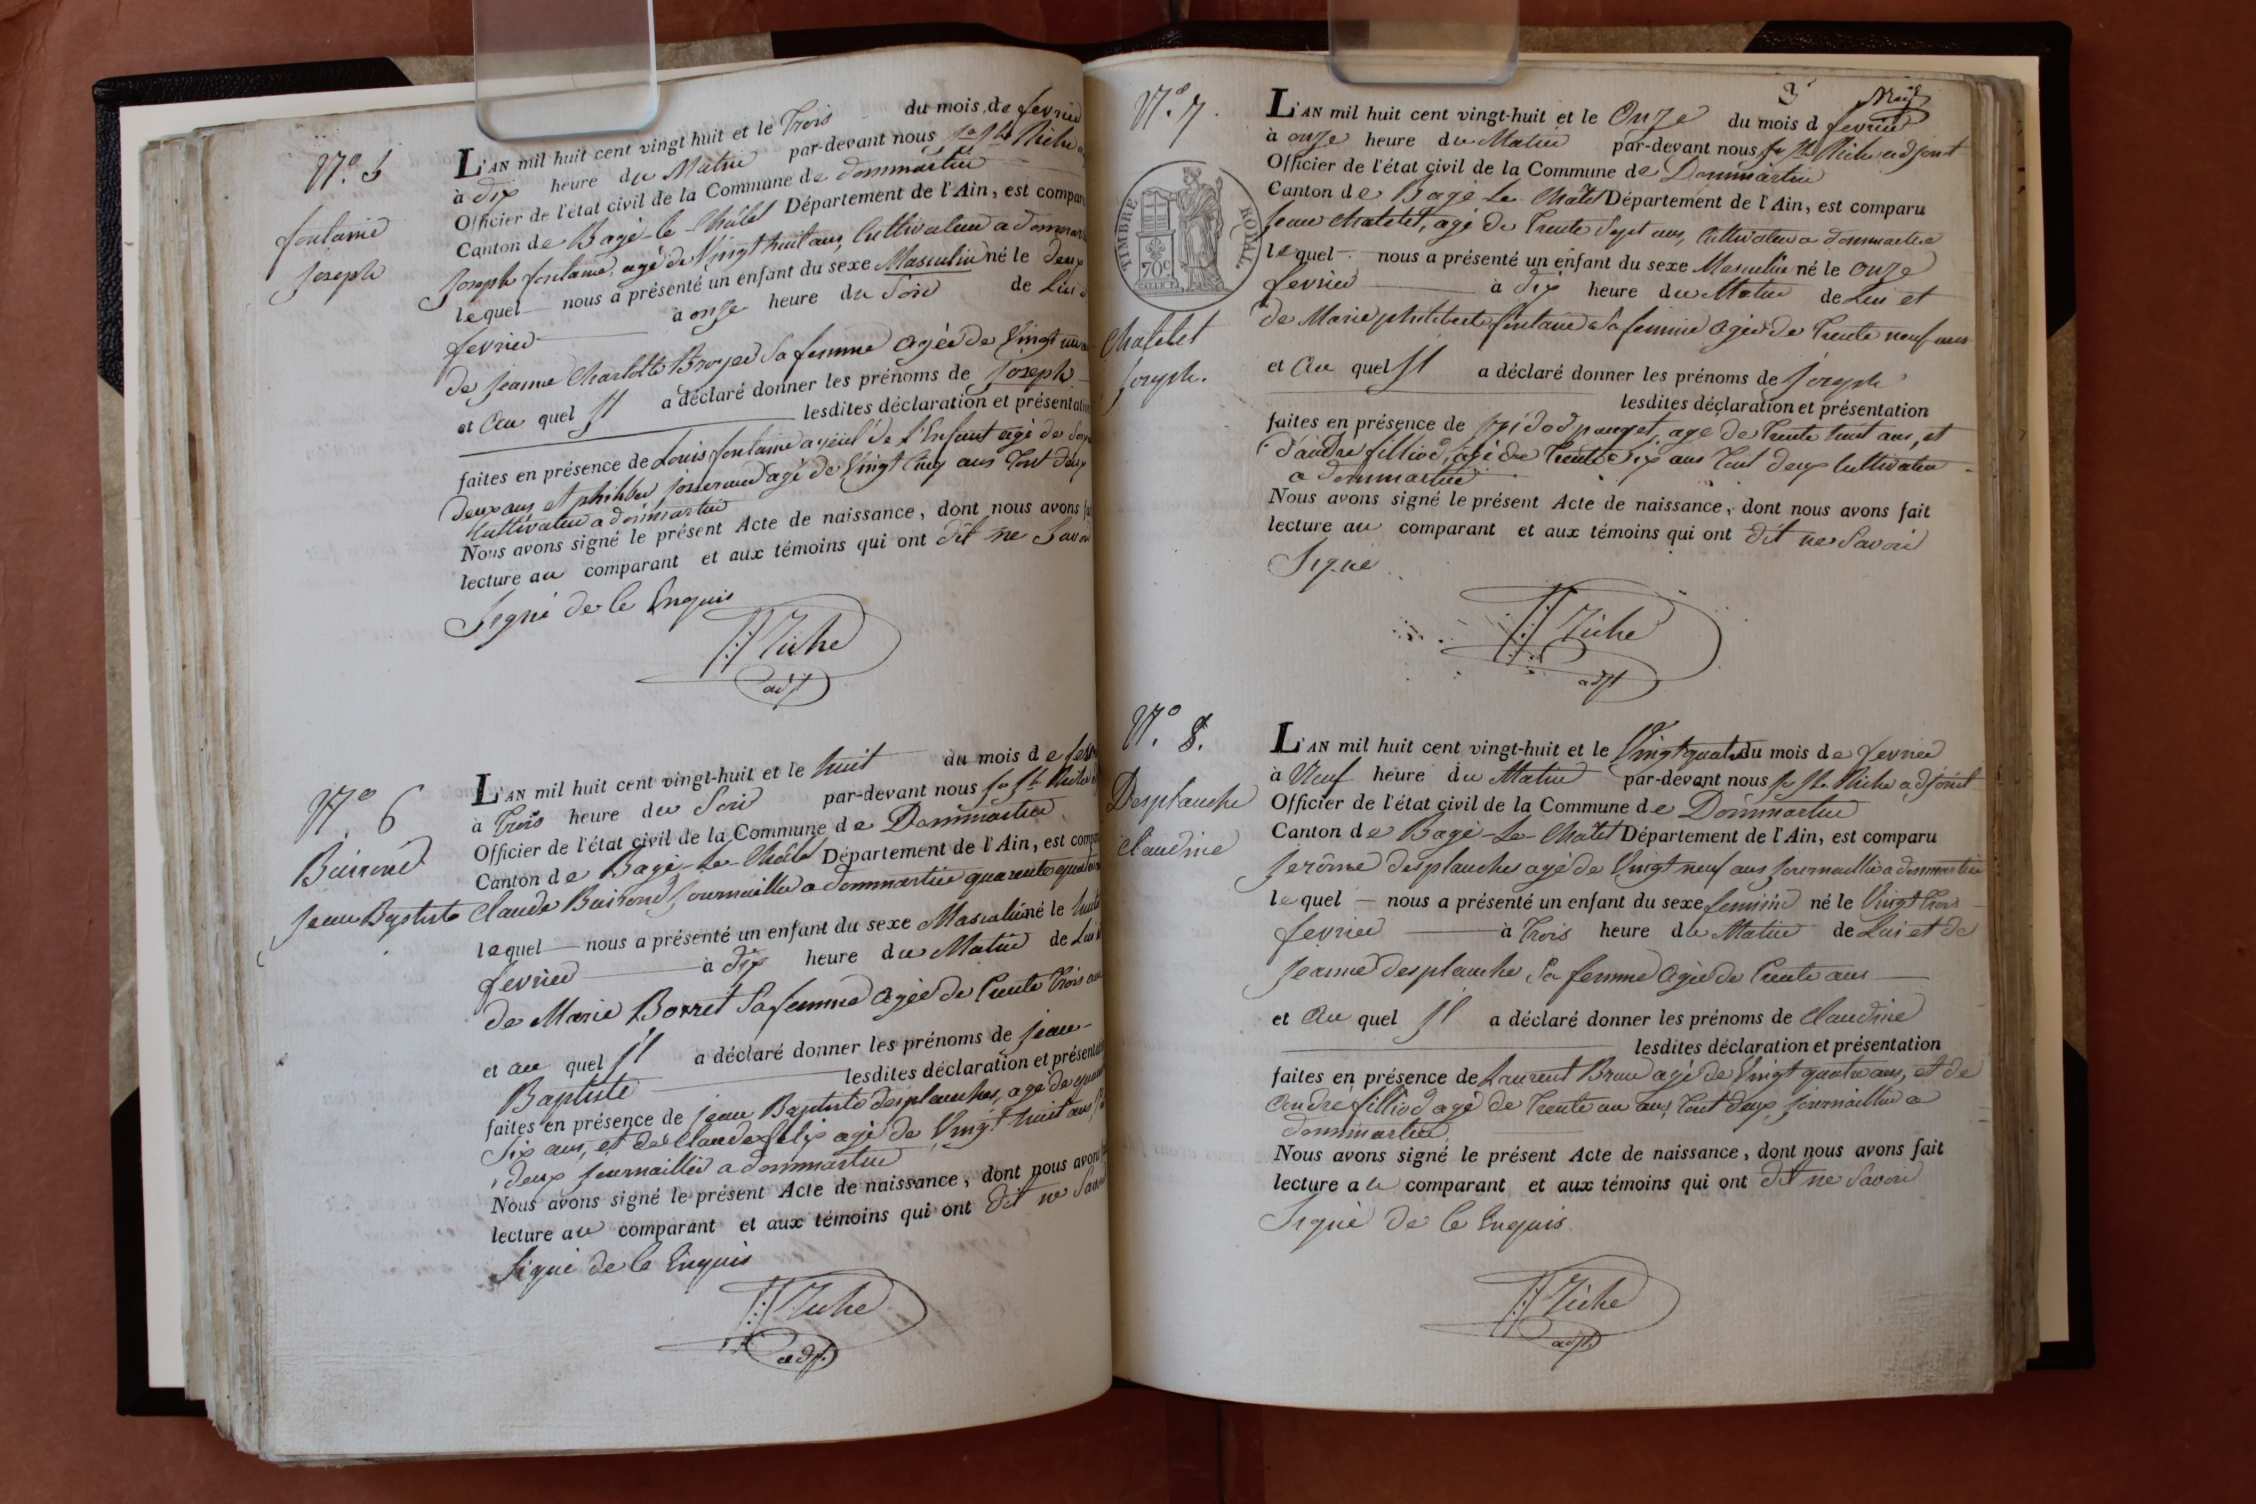 N.° 5
fontaine
joseph
L'AN mil huit cent vingt-huit et le Trois du mois de fevrier
à dix heure du Matin par-devant nous
Officier de l'état civil de la Commune de dommartin
Canton de Bagé-le-Châtel Département de l'Ain, est compar
joseph fontaine, agé de Vingt huit ans, Cultivateur a dommar
lequel nous a présenté un enfant du sexe Masculin né le deux
fevrier à onze heure du Soir de Lui
de jeanne Charlotte Broyer Sa femme agée de Vingt
et au quel Il a déclaré donner les prénoms de joseph
lesdites déclaration et présentati
faites en présence de Louis fontaine ayeul de l'Enfant agé de
deux ans, et philiber josserand agé de Vingt Cinq ans Tout deux
Cultivateur a dommartin
Nous avons signé le présent Acte de naissance, dont nous avons
lecture au comparant et aux témoins qui ont dit ne Savoir
Signé de ce Enquis
Niche
adjt
N° 6
Buirond
jean Baptiste
L'AN mil huit cent vingt-huit et le huit du mois de fev
à Trois heure du Soir par-devant nous
Officier de l'état civil de la Commune de Dommartin
Canton de Bagé-Le-Châtel Département de l'Ain, est comp
Claude Buirond journaillier a dommartin quarente quatre
lequel nous a présenté un enfant du sexe Masculin né le huit
fevrier à dix heure du Matin de Lui
de Marie Borret Sa femme agée de Trente Trois
et au quel Il a déclaré donner les prénoms de jean-
Baptiste lesdites déclaration et présentati
faites en présence de jean Baptiste desplanches, agé de
Six ans, et de Claude felix agé de Vingt huit ans
deux journaillier a dommartin
Nous avons signé le présent Acte de naissance, dont nous avons
lecture au comparant et aux témoins qui ont dit ne Savoir
Signé de ce Enquis
Niche
adjt.
3
N.° 7.
TIMBRE ROYAL
70c
Chatelet
joseph.
L'AN mil huit cent vingt-huit et le Onze du mois d fevrier
à onze heure du Matin par-devant nous Niche adjoint
Officier de l'état civil de la Commune de Dommartin
Canton de Bagé Le Châtel Département de l'Ain, est comparu
jean Chatelet, agé de Trente Sept ans, Cultivateur a dommartin
lequel nous a présenté un enfant du sexe Masculin né le onze
fevrier à dix heure du Matin de Lui et
de Marie philiberte fontaine Sa femme agée de Trente neuf ans
et au quel Il a déclaré donner les prénoms de joseph
lesdites déclaration et présentation
faites en présence de pouget, agé de Trente huit ans, et
d'andré filliod, agé de Trente Six ans Tout deux Cultivateur
a dommartin
Nous avons signé le présent Acte de naissance, dont nous avons fait
lecture au comparant et aux témoins qui ont dit ne Savoir
Signé
Niche
adjt
N.° 8.
Desplanche
Claudine
L'AN mil huit cent vingt-huit et le Vingt quatre du mois de fevrier
à Neuf heure du Matin par-devant nous Niche adjoint
Officier de l'état civil de la Commune de Dommartin
Canton de Bagé-Le-Châtel Département de l'Ain, est comparu
jerôme desplanches agé de Vingt neuf ans journaillier a dommartin
lequel nous a présenté un enfant du sexe feminin né le Vingt Trois
fevrier à Trois heure du Matin de Lui et de
jeanne desplanche Sa femme agée de Trente ans
et au quel Il a déclaré donner les prénoms de Claudine
lesdites déclaration et présentation
faites en présence de Laurent Brun agé de Vingt quatre ans, et de
andré filliod agé de Trente un ans, Tout deux journaillier a
dommartin
Nous avons signé le présent Acte de naissance, dont nous avons fait
lecture au comparant et aux témoins qui ont dit ne Savoir
Signé de ce Enquis
Niche
adjt.